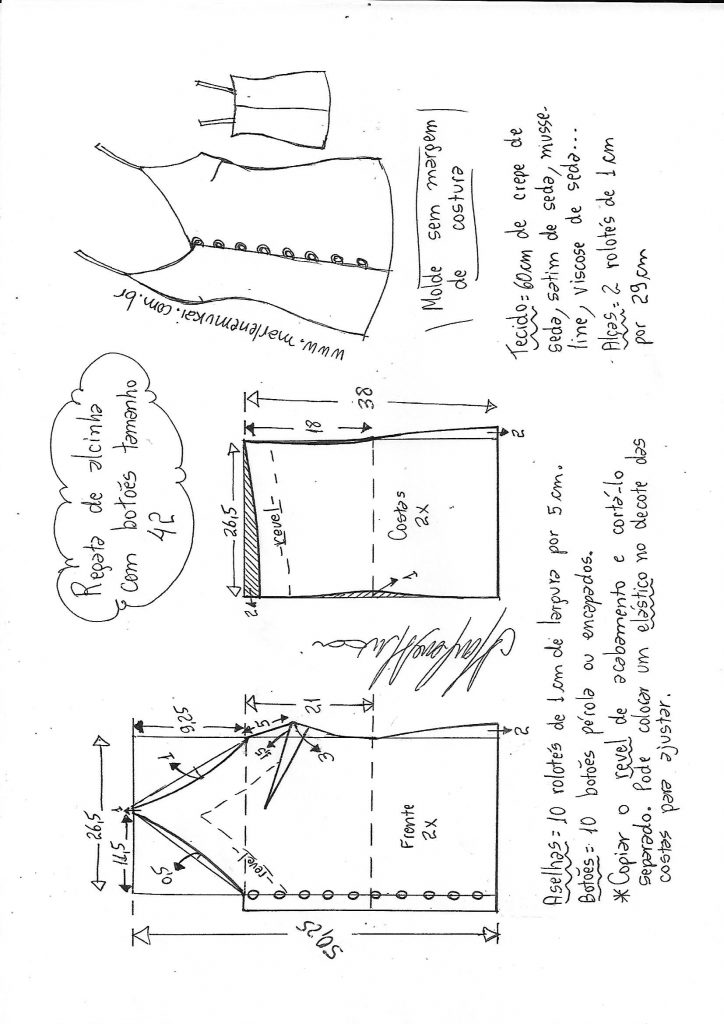 Regata de alcinha
com botões tamanho
42
www.marlenemukai.com.br
Molde sem margem
de costura
Tecido = 60cm de crepe de
seda, satim de seda, musse-
line, viscose de seda...
Alças = 2 rolotés de 1cm
por 29cm
50,25
26,5
9,25
1
0,5
5
1,5
3
21
2
revel
Frente
2X
26,5
2
revel
18
38
Costas
2X
1
2
Aselhas = 10 rolotés de 1cm de largura por 5cm.
Botões = 10 botões pérola ou encapados.
* Copiar o revel de acabamento e cortá-lo
separado. Pode colocar um elástico no decote das
costas para ajustar.